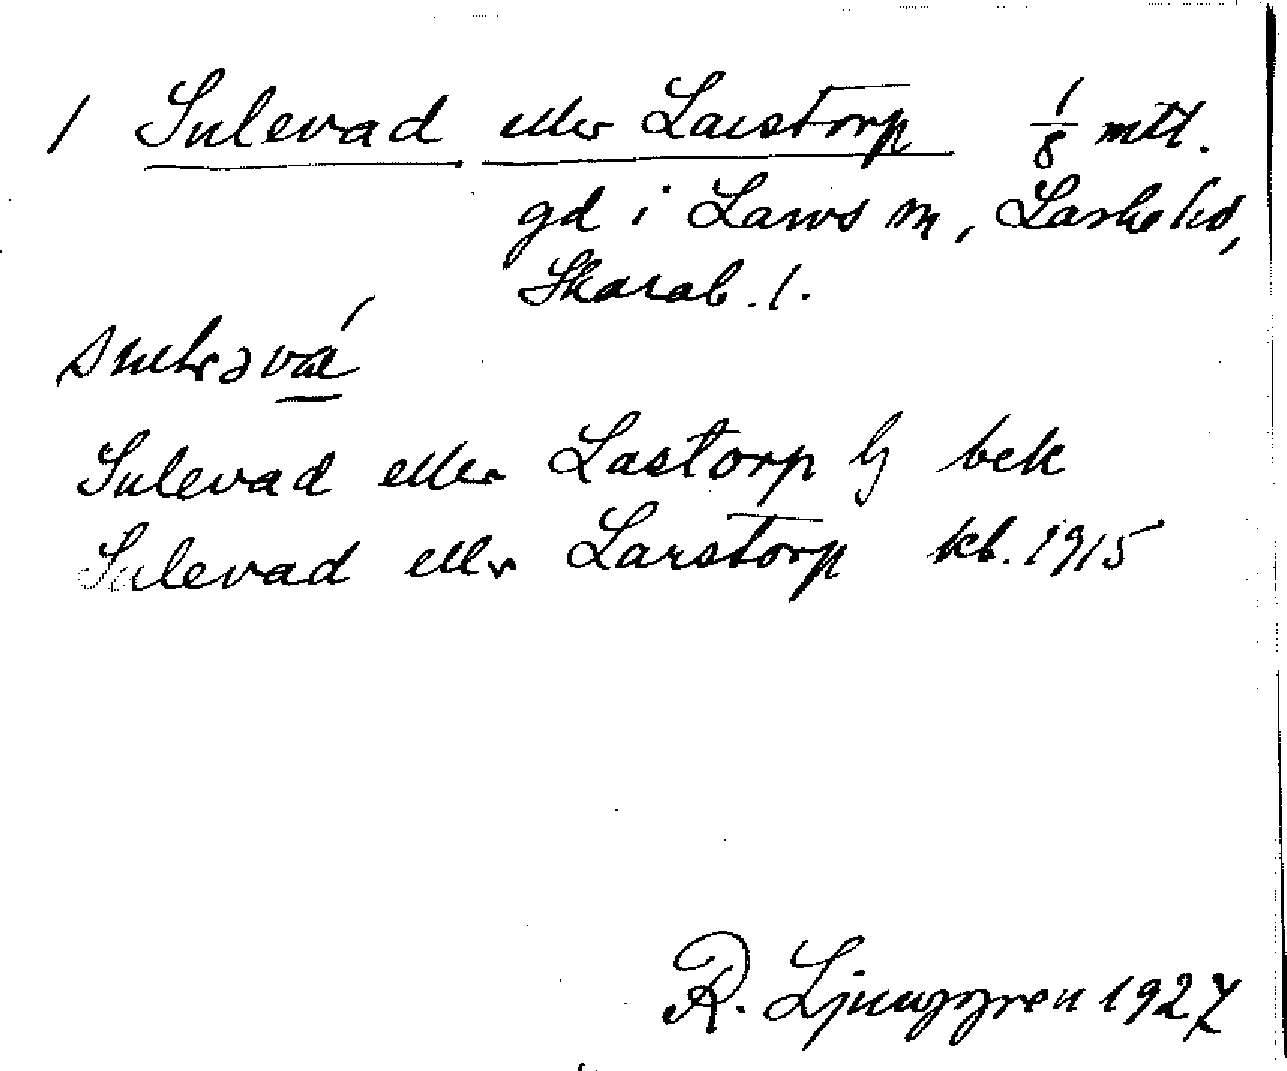 1 Sulevad eller Larstorp 1/8 mtl.
gd i Larvs sn, Laske hd,
Skarab. l.
Sulevad eller Lastorp Gj bek
Sulevad eller Larstorp kb. 1915
R. Ljunggren 1927